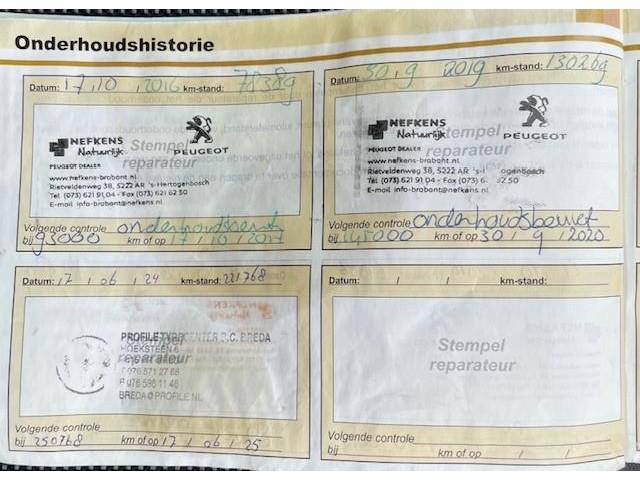 Onderhoudshistorie
Datum: 17,10 , 2016 km-stand:
NEFKENS
Natuurlijk
PEUGEOT DEALER
PEUGEOT
Stempel
reparateur
www.nefkens-brabant.nl
Rietveldenweg 38, 5222 AR 's-Hertogenbosch
Tel (073) 621 91 04 - Fax (073) 621 62 50
E-mail info-brabant@nefkens.nl
Volgende controle onderhoudsbeurt
bij 93000 km of op 17 / 10 / 2017
Datum: 30 , 9 2019 km-stand:
NEFKENS
Natuurlijk
PEUGEOT DEALER
PEUGEOT
Stempel
reparateur
www.nefkens-brabant.nl
Rietveldenweg 38, 5222 AR 's-H ogenbosch
Tel (073) 621 91 04 - Fax (073) 6 62 50
E-mail info-brabant@nefkens.nl
Volgende controle onderhoudsbeurt
bij 145000 km of op 30 / 9 / 2020
Datum: 17 / 06 / 24 km-stand: 221768
PROFILE TYRECENTER B.C. BREDA
HOEKSTEEN 6
Stempel
reparateur
T 076 571 27 68
F 076 596 11 46
BREDA@PROFILE.NL
Volgende controle
bij 250768 km of op 17 / 06 / 25
Datum: / / km-stand:
Stempel
reparateur
Volgende controle
bij km of op / /